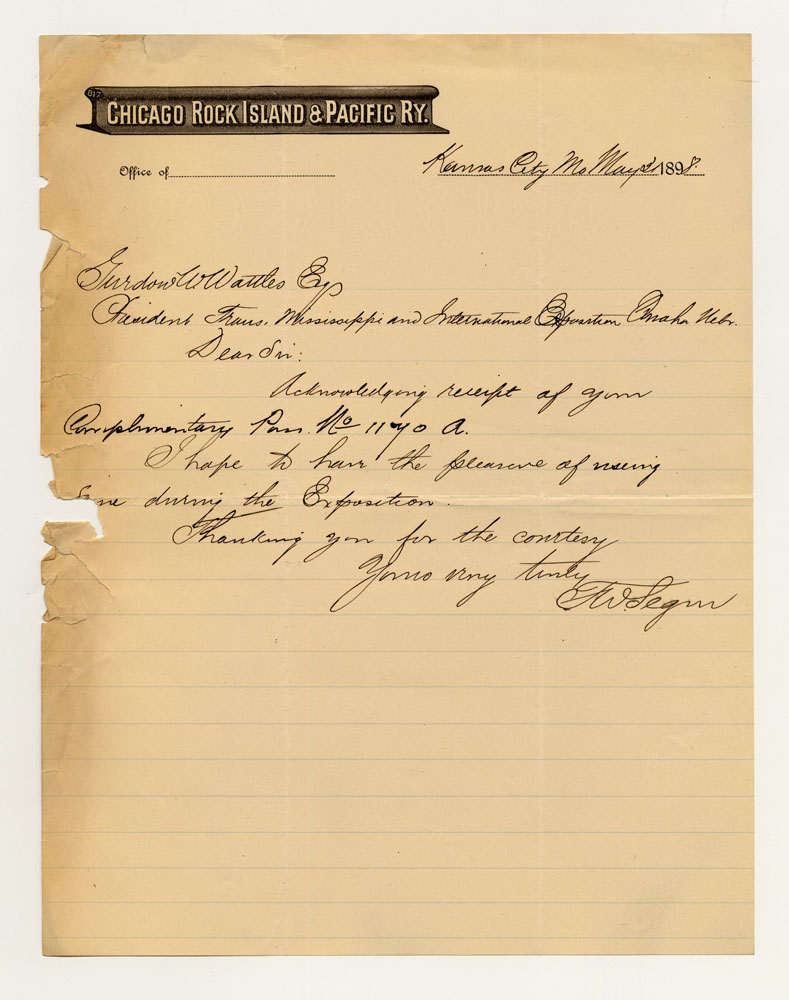 817
CHICAGO ROCK ISLAND & PACIFIC RY.
Office of
Kansas City Mo May 31 1898.
Gurdon W Wattles Esq
President Trans. Mississippi and International Exposition Omaha Nebr.
Dear Sir:
Acknowledging receipt of your
Complimentary Pass. No 1190 A.
I hope to have the pleasure of useing
same during the Exposition.
Thanking you for the courtesy
Yours very truly